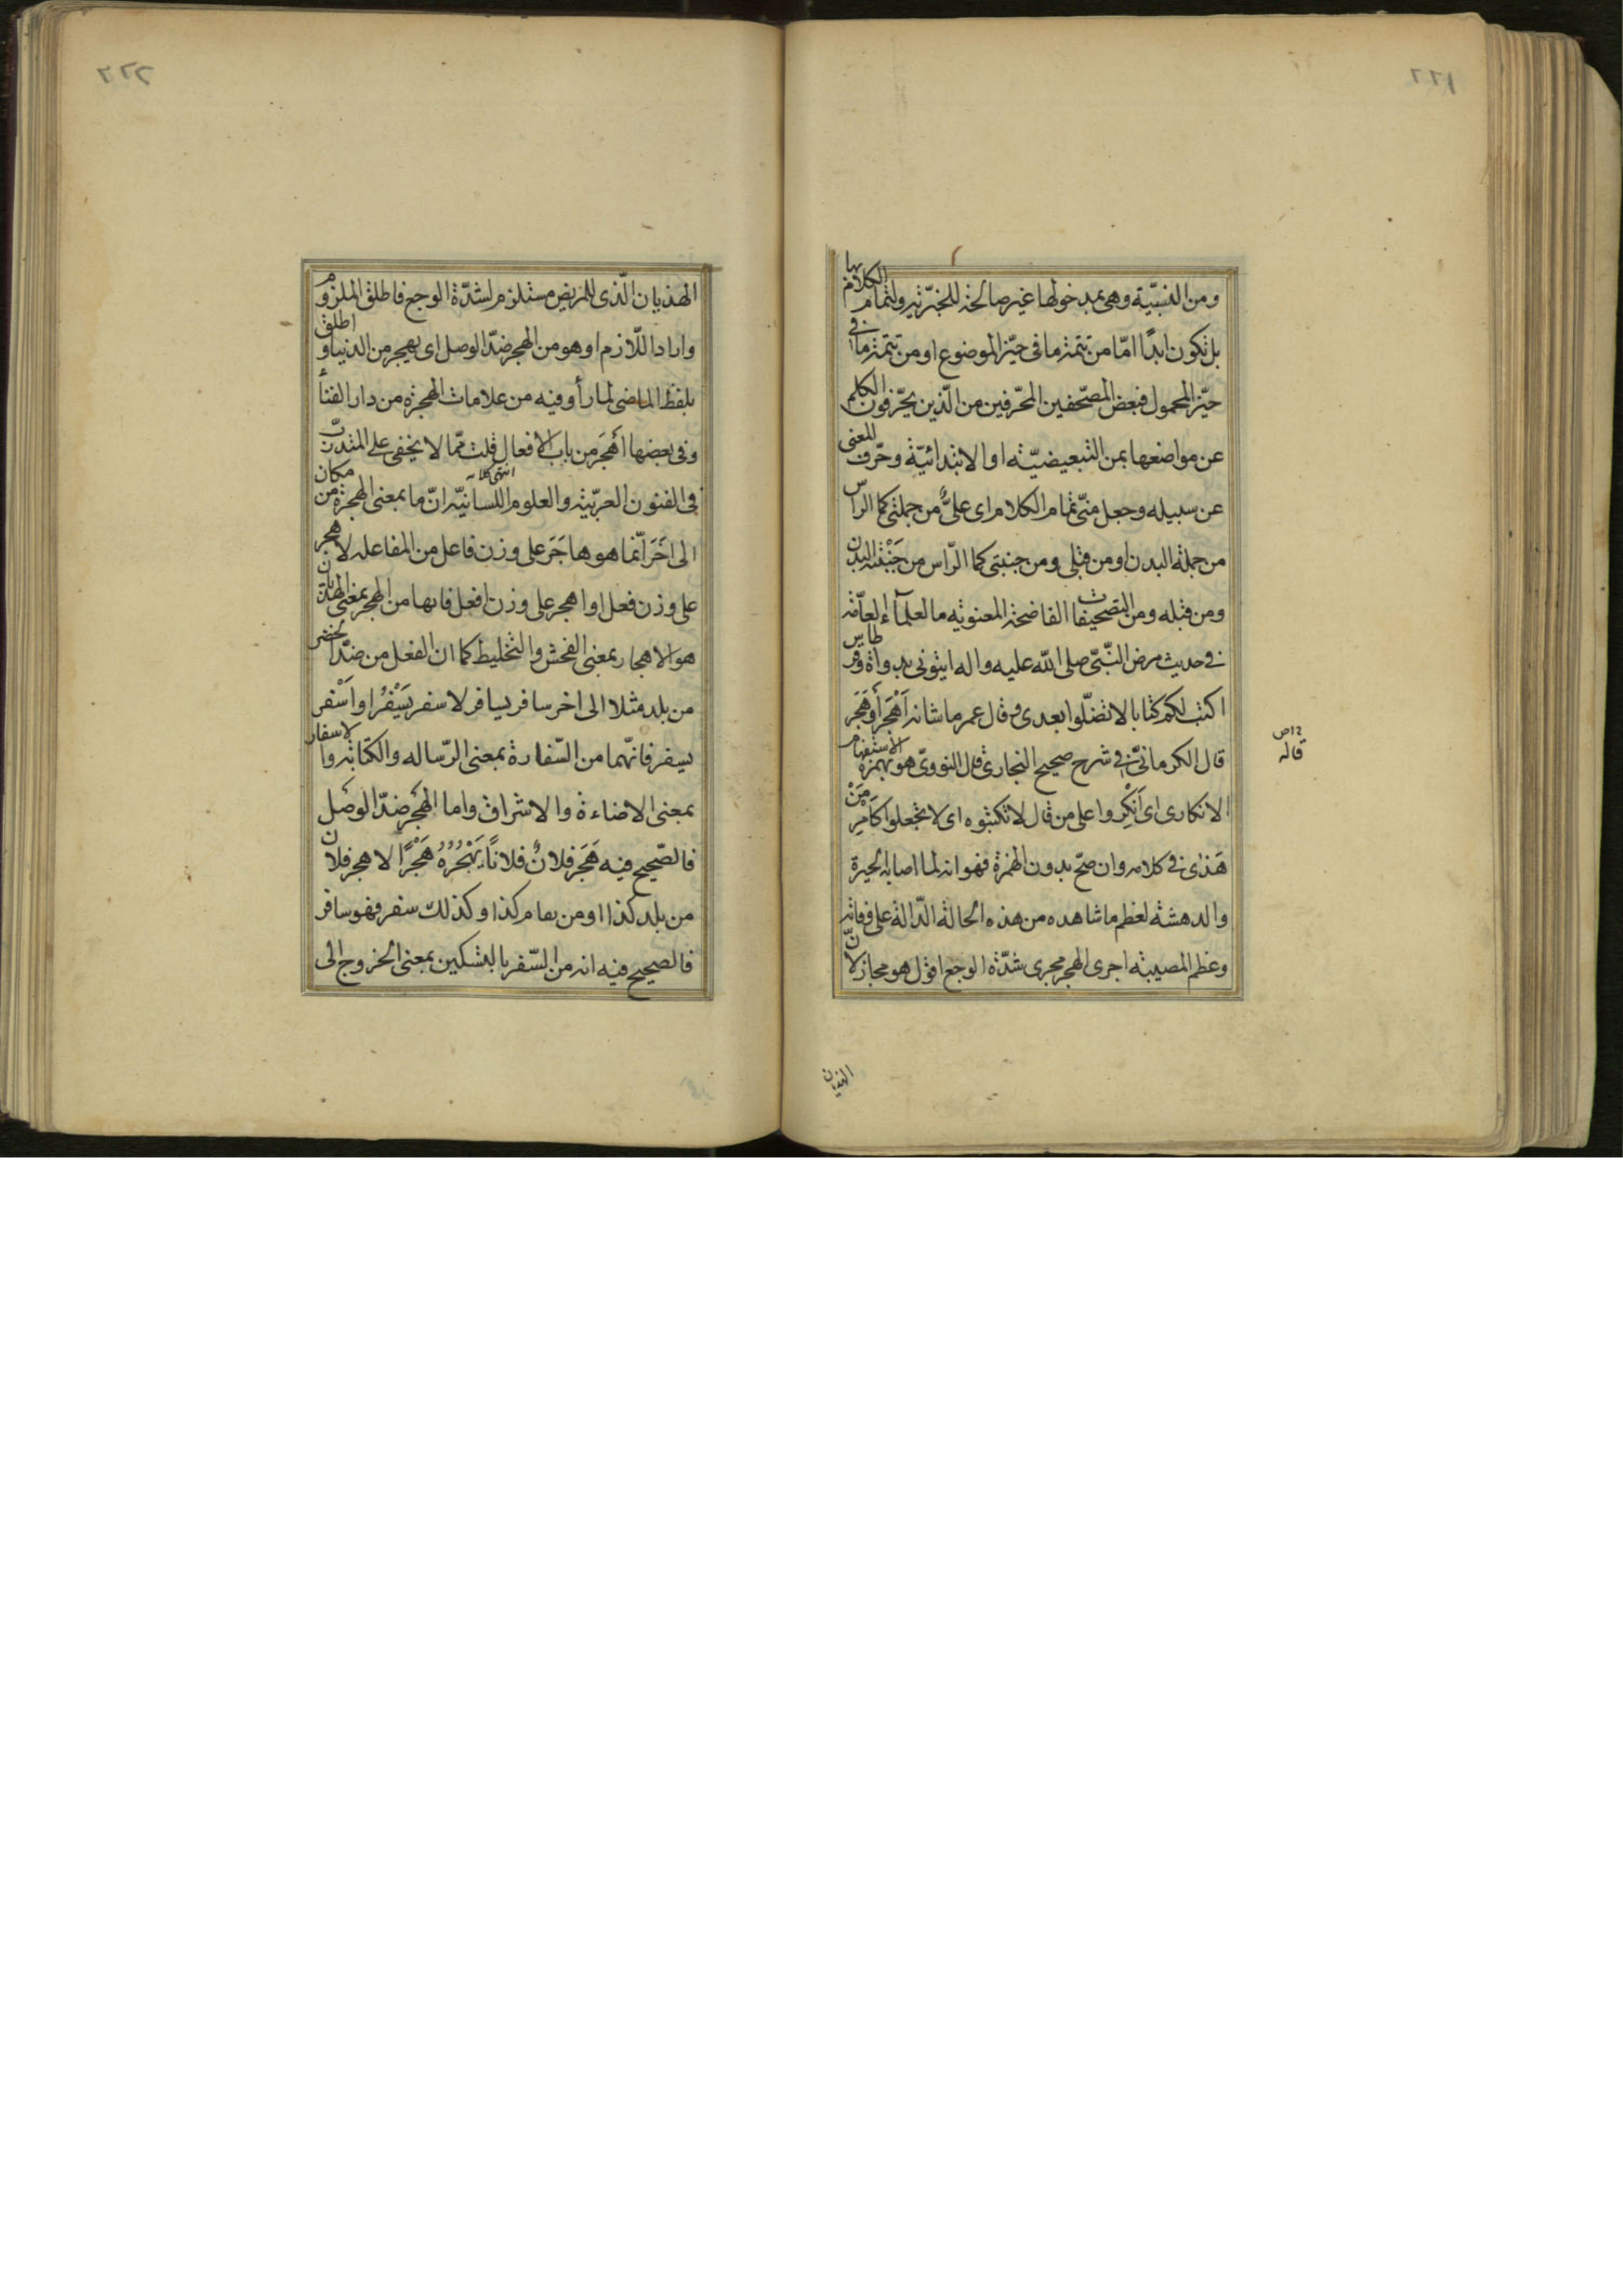 ومن النسبيّة وهى بمدخولها غير صالحة للخبريّة ولتمام الكلام بها
بل تكون ابدًا امّا من تتمة ما فى حيّز الموضوع او من تتمة ما فى
حيّز المحمول فبعض المصحّفين المحرّفين من الّذين يحرّفون الكلم
عن مواضعها بمن التبعيضيّة او الابتدائيّة وحرّف المعنى
عن سبيله وجعل منّى تمام الكلام اى علىٌّ من جملتى كما الرّاس
من جملة البدن او من قبلى ومن جنبتى كما الرّاس من جَنْبَة البدن
ومن قبله ومن التصحيفات الفاضحة المعنويه ما لعلمآء العامّة
فى حديث مرض النّبىّ صلى الله عليه واله ايتونى بدواة وقرطاس
اكتب لكم كتابا لا تضلّوا بعدى وقال عمر ما شانه أَهْجَرَ أَوهَجَرَ
قال الكرمانىّ فى شرح صحيح البخارى قال النووىّ هو بهمزة الاستفهام
الانكارى اى أَنْكِروا على من قال لا تكتبوه اى لا تجعلوا كامر مَنْ
هَذٰى فى كلامه وان صحّ بدون الهمزة فهو انه لما اصابه الحيرة
والدهشة لعظم ما شاهده من هذه الحالة الدّالة على وفاته
وعظم المصيبة اجرى الهجر مجرى شدّة الوجع اقول هو مجاز لانّ
قاله
الهذيان
الهذيان الّذى للمريض مستلزم لشدّة الوجع فاطلق الملزوم
واراد اللّازم او هو من الهجر ضدّ الوصل اى يهجر من الدنيا واطلق
بلفظ الماضى لما رأو فيه من علامات الهجرة من دار الفنأ
وفى بعضها اَهْجَرَ من باب الافعال قلت ممّا لا يخفى على المتدرّب
انتهى كلامه
فى الفنون العربيّة والعلوم اللسانيّه انّ ما بمعنى الهجرة من مكان
الى اخَرَ انّما هو هاجَرَ على وزن فاعل من المفاعله لا هجر
على وزن فعل او اهجر على وزن افعل فانها من الهجر بمعنى الهذيان
هو الاهجار بمعنى الفحش والتخليط كما ان الفعل من ضدّ الحضر
من بلد مثلا الى اخر سافر يسافر لا سفر يَسْفُر او اَسْفر
يسفر فانّهما من السّفارة بمعنى الرّساله والكتابة والاسفار
بمعنى الاضاءة والاشراق واما الهَجْر ضدّ الوصل
فالصّحيح فيه هَجَر فلانٌ فلانًا يَهْجُرُهُ هَجْرًا لا هجر فلان
من بلد كذا او من مقام كذا وكذلك سفر فهو سافر
فالصحيح فيه انه من السّفر بالتسكين بمعنى الخروج الى